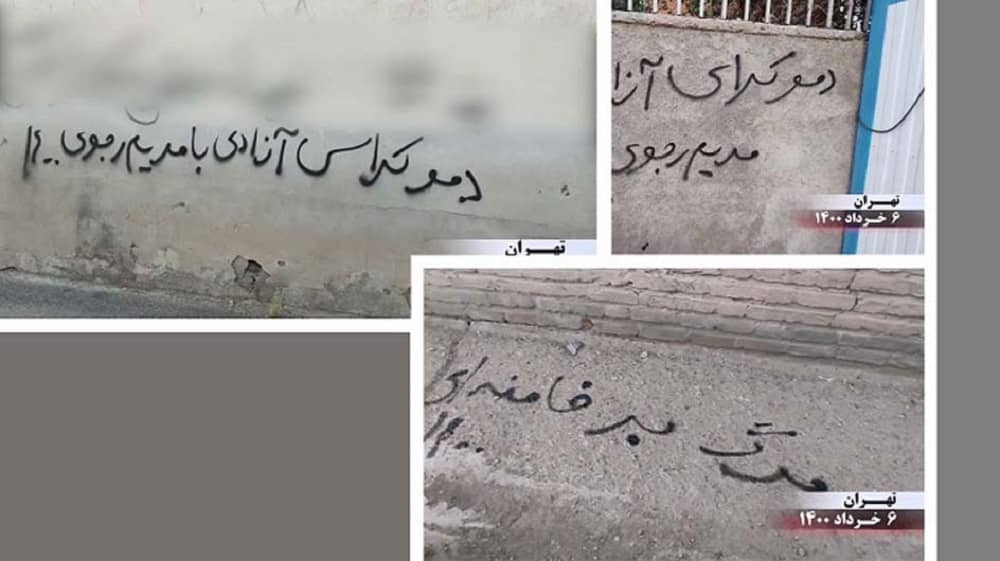 دموکراسی آزادی با مریم رجوی ۱۴۰۰
تهران
دموکراسی آزا
مریم رجوی
تهران
۶ خرداد ۱۴۰۰
مرگ بر خامنه‌ای
۱۴۰۰
تهران
۶ خرداد ۱۴۰۰